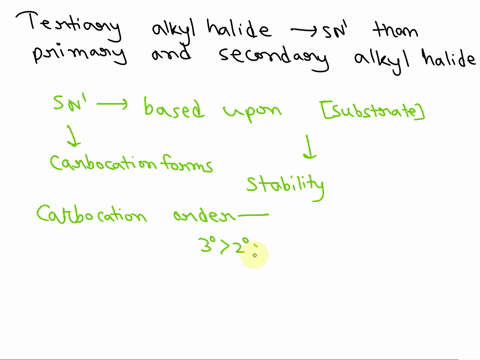 Tertiary alkyl halide → SN¹ than
primary and secondary alkyl halide
SN¹ → based upon [substrate]
↓ ↓
Carbocation forms
stability
Carbocation order —
3° > 2° >